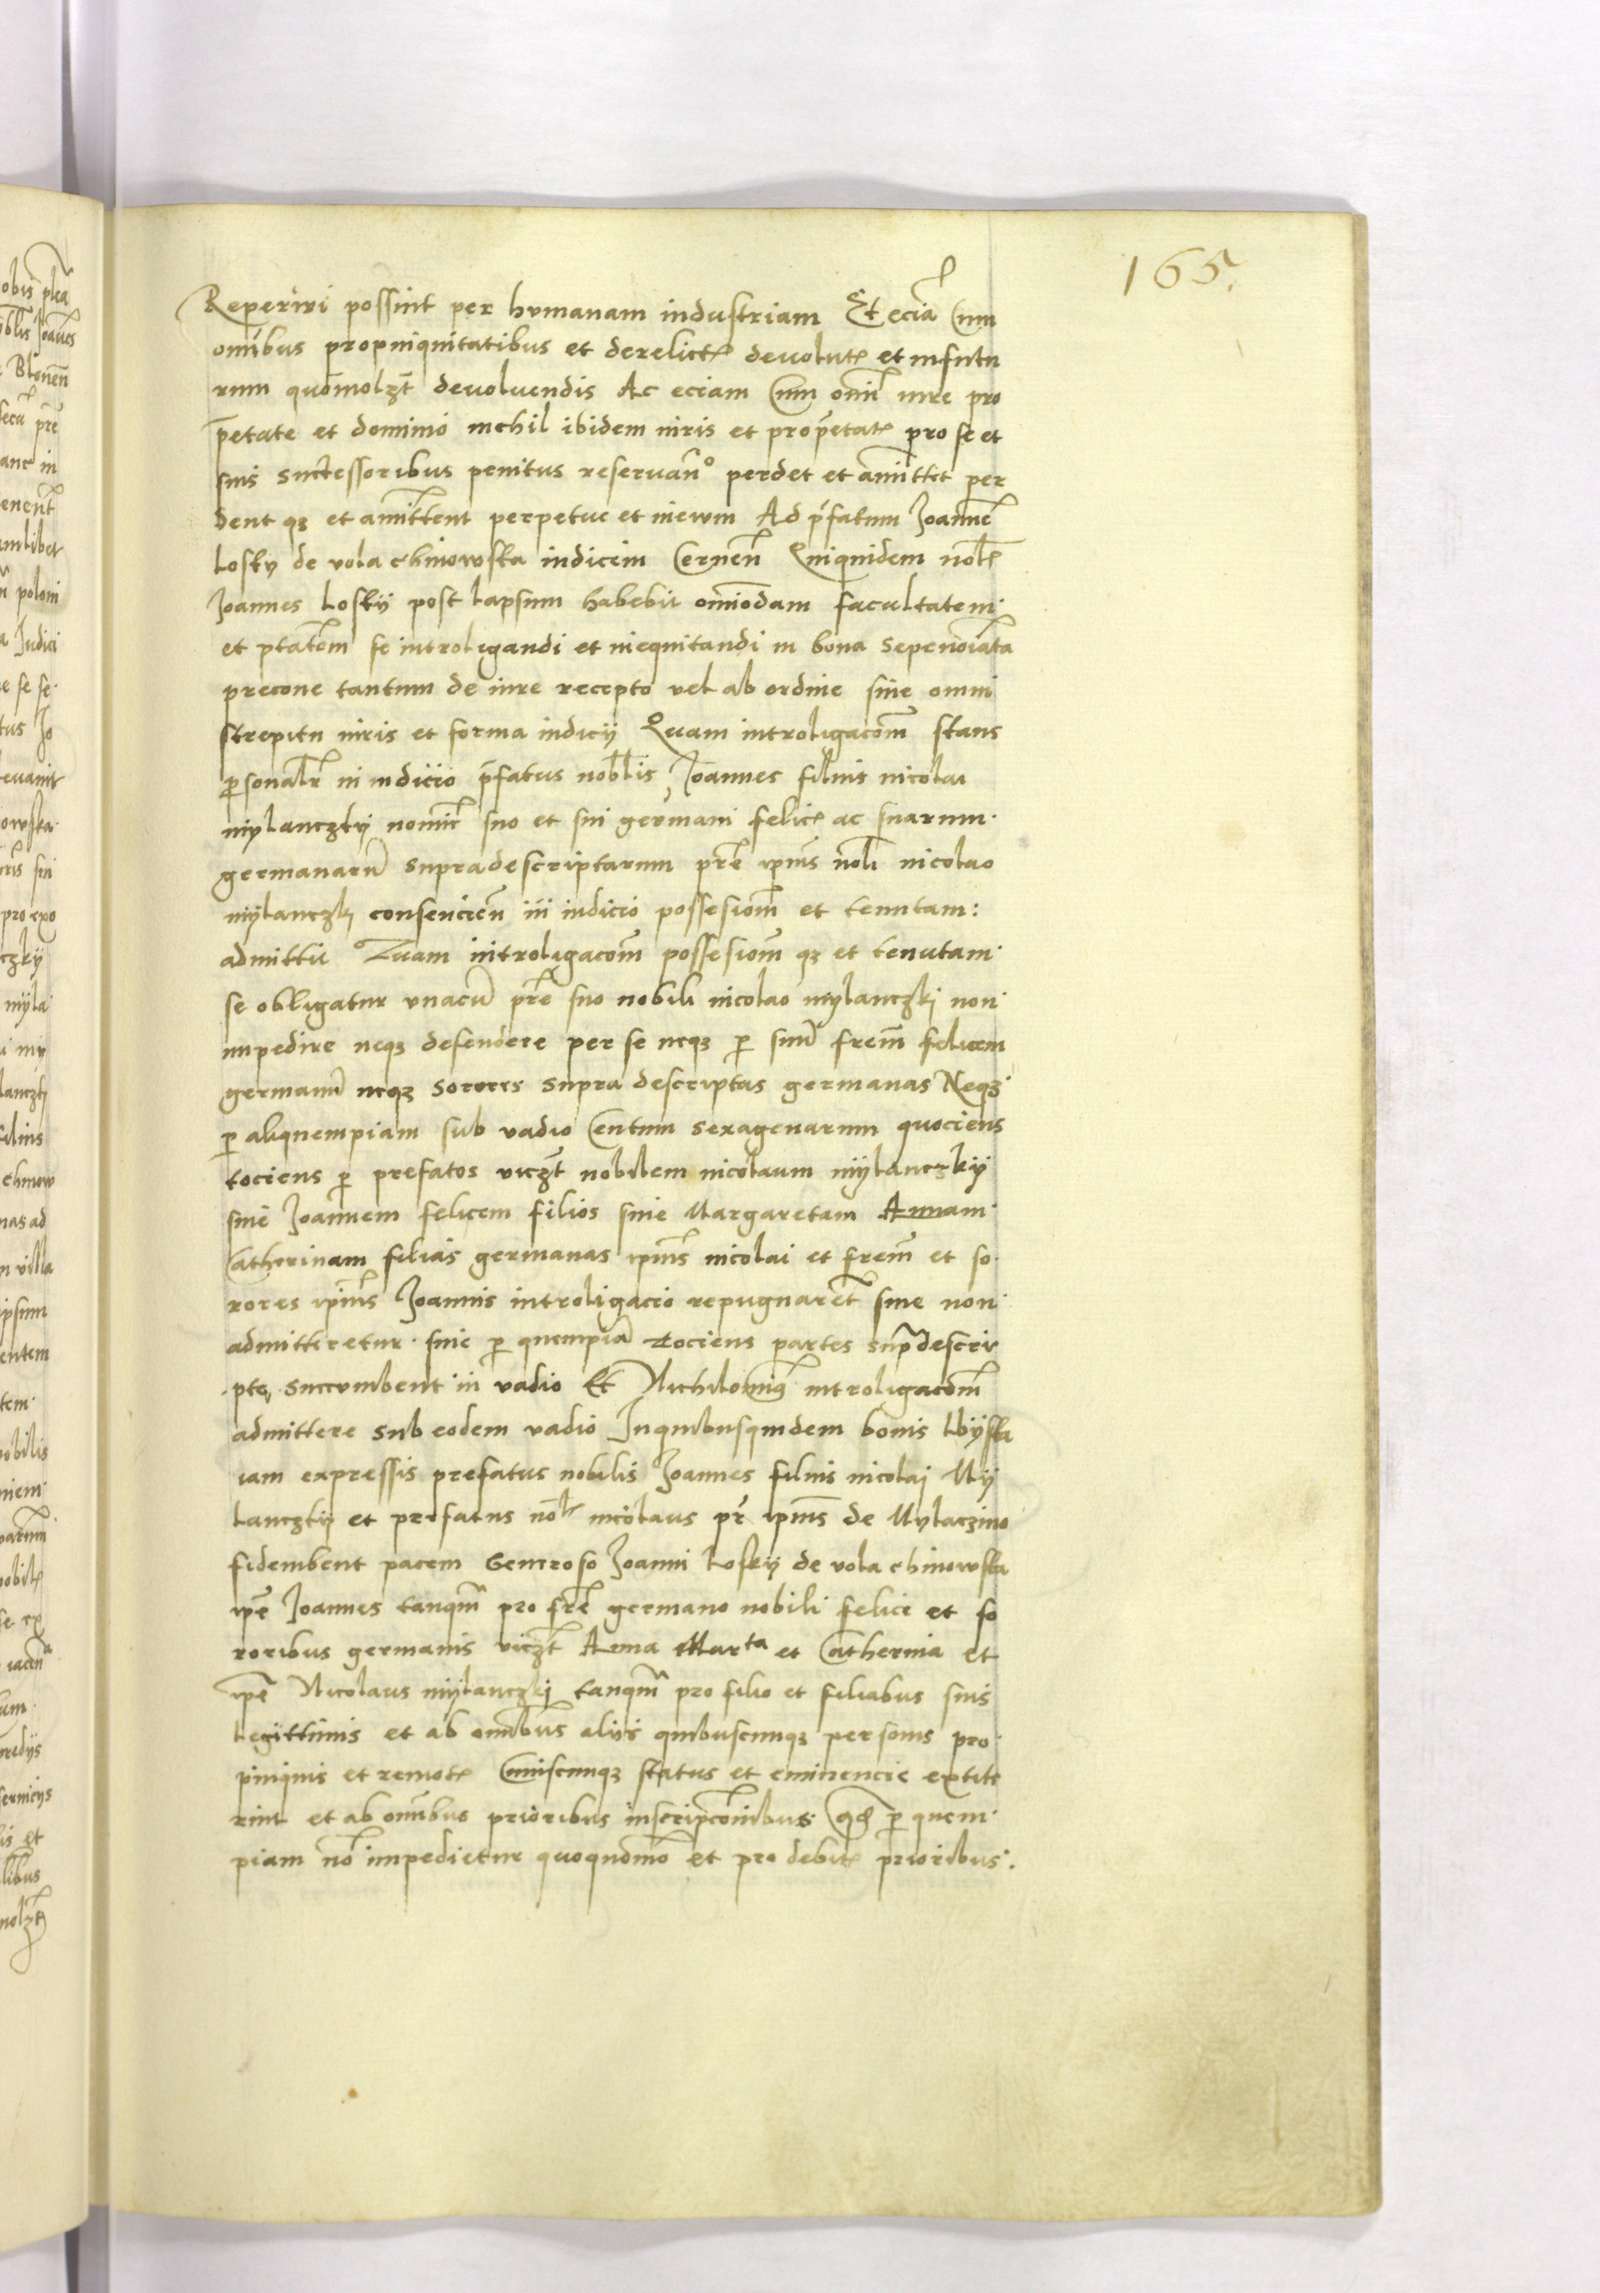 165.
Reperiri possint per humanam industriam Et eciā Cum
omībus propinquitatibus et derelictꝭ devolutꝭ et in futu
rum quōmolzt devoluendis Ac eciam Cum omī iure pro
p̄etate et dominio nichil ibidem iuris et prop̄etatꝭ pro se et
suis successoribus penitus reservan̄o perdet et amittet per
dent qꝫ et amittent perpetue et in ewm Ad p̄fatum Joannē
Losky de vola chinowska iudicem Cernen̄ Quiquidem nolꝭ
Joannes Loskij post lapsum habebit omīodam facultatem
et ptatem̄ se introligandi et inequitandi in bona sepenoīata
precone tantum de iure recepto vel ab ordine sine omni
strepitu iuris et forma iudicij Quam introligacōm̄ stans
ꝑsonalr̄ in iudicio p̄fatus nobilis Joannes filius nicolai
mylanczky nomīe suo et sui germani felicꝭ ac suarum
germanarū supradescriptarum pr̄e ipius̄ nobli nicolao
mijlanczkj consencien̄ in iudicio possesiom̄ et tenutam:
admittit Quam introligacōm̄ possesiom̄ qꝫ et tenutam
se obligatur unacū pr̄e suo nobili nicolao mylanczkj non
impedire neqꝫ defendere per se neqꝫ ꝑ suū frem̄ felicem
germanū neqꝫ sorores supra descriptas germanas Neqꝫ
ꝑ aliquempiam sub vadio Centum sexagenarum quociens
tociens ꝑ prefatos viczt̄ nobilem nicolaum mijlanczkij
sive Joannem felicem filios sive Margaretam Annam
Catherinam filias germanas ipius̄ nicolai et frem̄ et so
rores ipius̄ Joannis introligacio repugnaret̄ sive non
admitteretur sive ꝑ quempiā tociens partes sup̄descri
pte succumbent in vadio Et Nichilomiꝰ introligacōm̄
admittere sub eodem vadio In quibusquidem bonis Lbijska
iam expressis prefatus nobilis Joannes filius nicolaj Mij
lanczkij et prefatus nolꝭ nicolaus pr̄ ipius̄ de Mylaczino
fideiubent pacem Generoso Joanni Loskij de vola chinowska
ipē Joannes tanqm̄ pro fr̄e germano nobili felice et so
roribus germanis viczt̄ Anna Marta et Catherina et
ipē Nicolaus mijlanczkj tanqm̄ pro filio et filiabus suis
legittimis et ab omībus aliis quibuscunqꝫ personis pro
pinquis et remotꝭ Cuiuscunqꝫ status et eminencie extite
rint et ab omībus prioribus inscripcōnibus qd̄ ꝑ quem
piam nō impedietur quoquomō et pro debitꝭ prioribus.